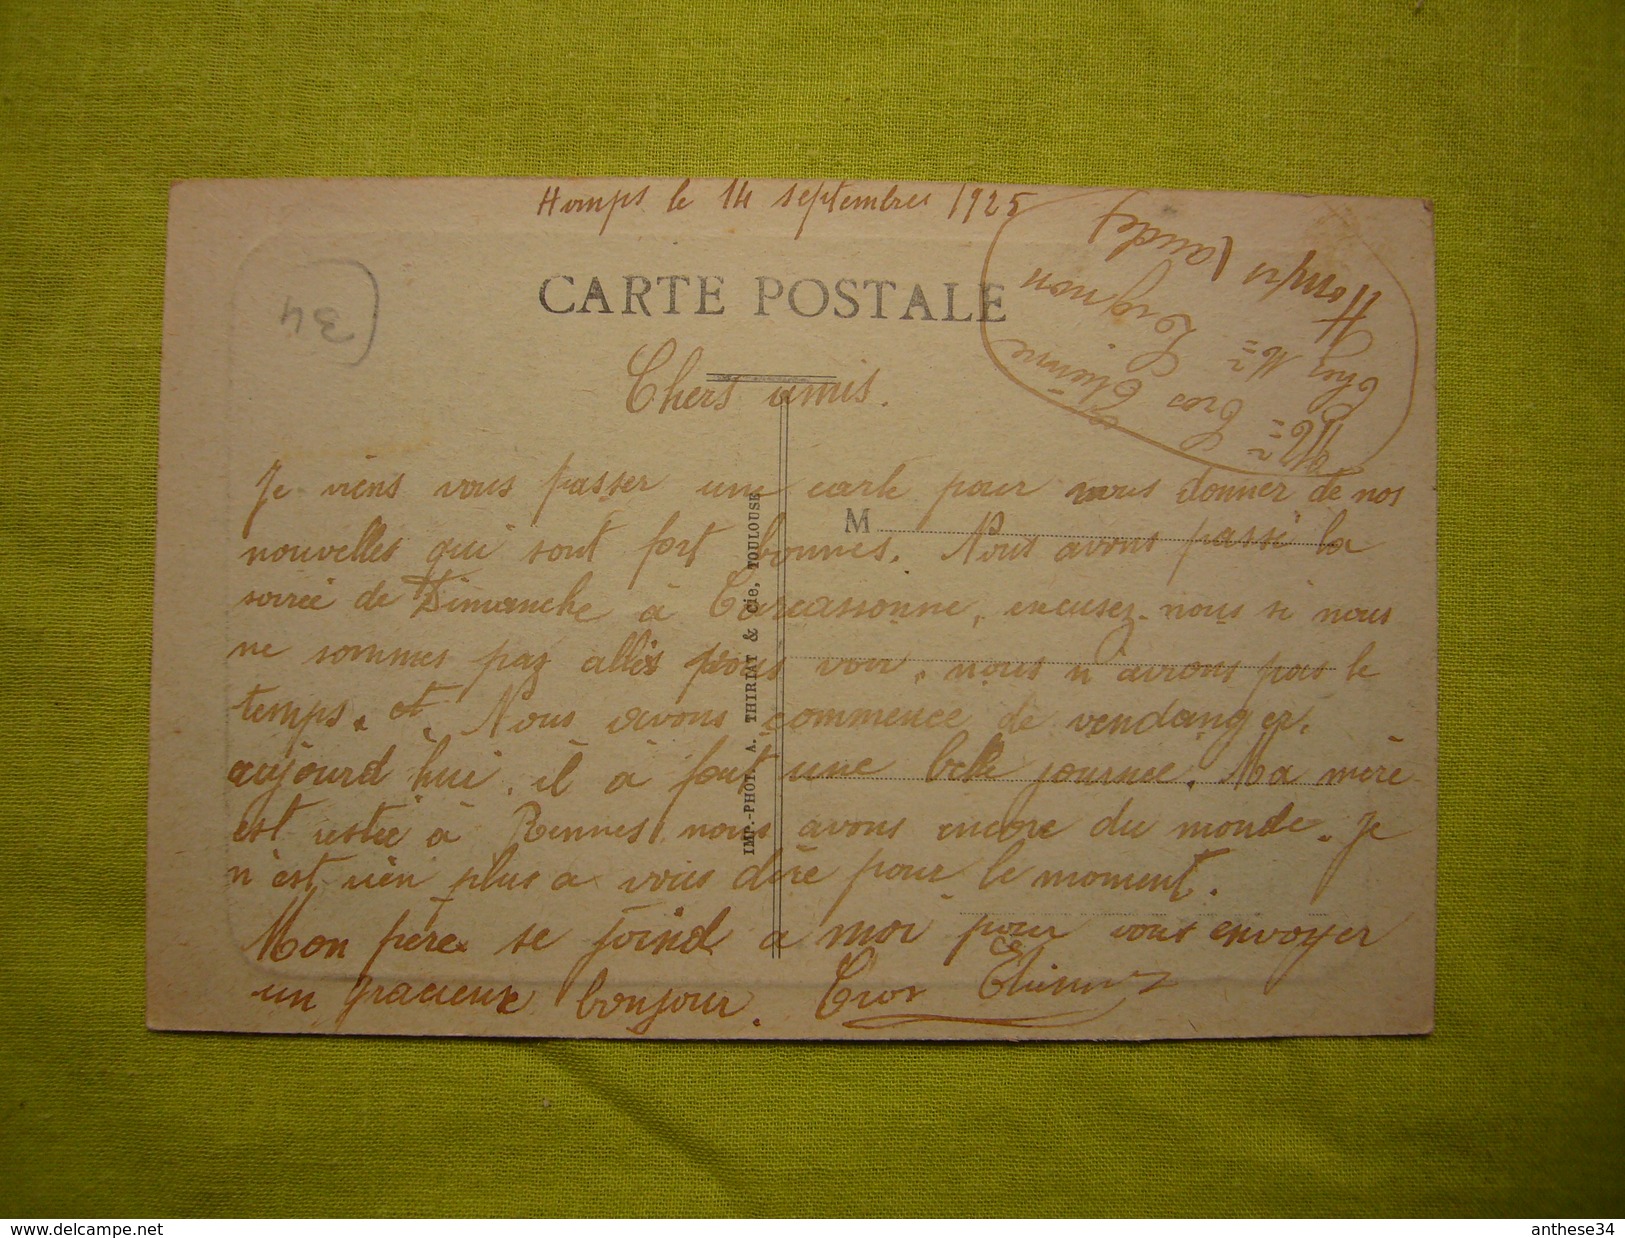 Homps le 14 septembres 1925
CARTE POSTALE
34
Mr Cros Etienne
Chez Mr Lignon
Homps (aude)
Chers amis.
Je viens vous passer une carte pour vous donner de nos
nouvelles qui sont fort bonnes. Nous avons passé la
soirée de Dimanche à Carcassonne, excusez-nous si nous
ne sommes pas allés vous voir, nous n'avons pas le
temps. et. Nous avons commence de vendanger.
aujourd hui, il à fait une belle journee. Ma mère
est restée à Rennes, nous avons encore du monde. Je
n'est rien plus a vous dire pour le moment.
Mon père se joind a moi pour vous envoyer
un gracieux bonjour. Cros Etienne
M
IMP.-PHOT. A. THIRIAT & Cie, TOULOUSE
www.delcampe.net
anthese34